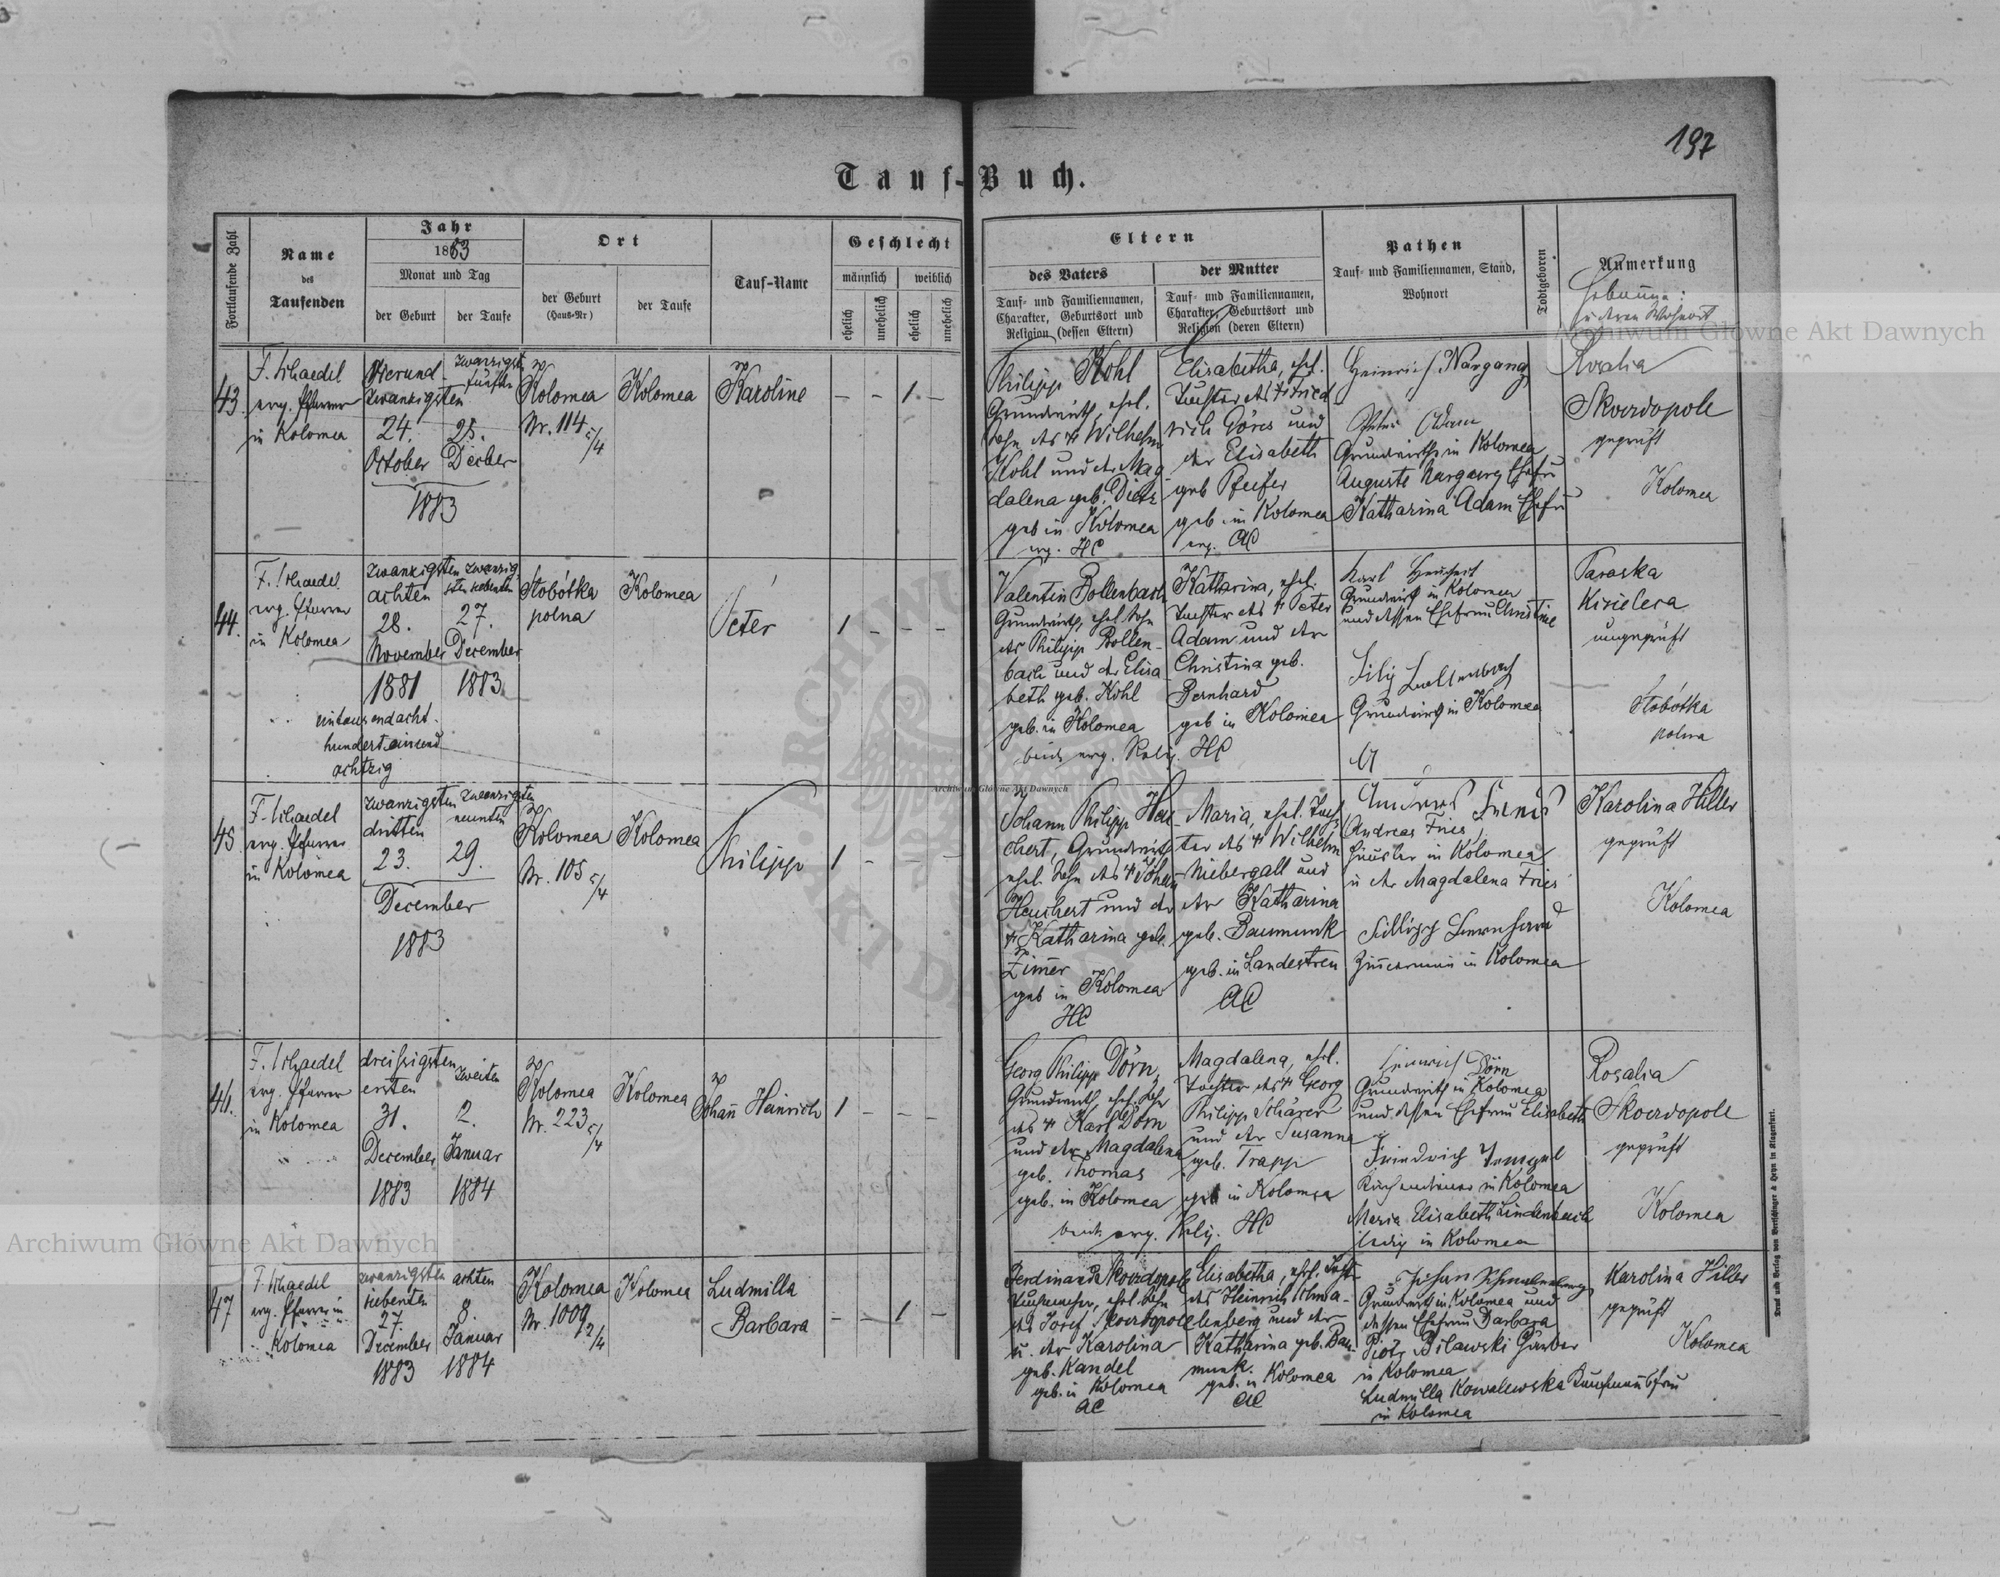 197
Tauf-Buch.
Fortlaufende Zahl
Name
des
Taufenden
Jahr
1883
Monat und Tag
der Geburt
der Taufe
Ort
der Geburt
(Haus-Nr)
der Taufe
Tauf-Name
Geschlecht
männlich
weiblich
ehelich
unehelich
ehelich
unehelich
Eltern
des Vaters
Tauf- und Familiennamen,
Charakter, Geburtsort und
Religion (dessen Eltern)
der Mutter
Tauf- und Familiennamen,
Charakter, Geburtsort und
Religion (deren Eltern)
Pathen
Tauf- und Familiennamen, Stand,
Wohnort
Todtgeboren
Anmerkung
Hebamme:
deren Wohnort
43.
F. Schaedel
evg. Pfarrer
in Kolomea
Vierund
zwanzigsten
24.
October
zwanzigst
fünften
25.
Decber
1883
Kolomea
Nr. 114 5/4
Kolomea
Karoline
- - 1 -
Philipp Kohl
Grundwirth, ehel.
Sohn des † Wilhelm
Kohl und der Mag
dalena geb. Dietz
geb in Kolomea
evg. HC
Elisabetha, ehel.
Tochter des † Fried
rich Döres und
der Elisabeth
geb Pfeifer
geb. in Kolomea
evg. AC
Heinrich Nargang
Peter Adam
Grundwirthe in Kolomea
Auguste Nargang Ehefr
Katharina Adam Ehefr
Rosalia
Skwordopole
geprüft
Kolomea
44.
F. Schaedel
evg. Pfarrer
in Kolomea
zwanzigsten
achten
28.
November
1881
eintausendacht
hundert einund
achtzig
zwanzig
sten siebenten
27.
December
1883
Slobótka
polna
Kolomea
Peter
1 - - -
Valentin Bollenbach
Grundwirth, ehel. Sohn
des Philipp Bollen-
bach und der Elisa
beth geb. Kohl
geb. in Kolomea
beide evg. Relig. HC
Katharina, ehel.
Tochter des † Peter
Adam und der
Christina geb.
Bernhard
geb in Kolomea
Karl Heuchert
Grundwirth in Kolomea
und dessen Ehefrau Christine
Grundwirth in Kolomea
Paraska
Kisielera
ungeprüft
Slobótka
polna
45.
F. Schaedel
evg. Pfarrer
in Kolomea
zwanzigsten
dritten
23.
zwanzigsten
neunten
29.
December
1883
Kolomea
Nr. 105 5/4
Kolomea
Philipp
1 - - -
Johann Philipp Heu
chert, Grundwirth
ehel. Sohn des † Johann
Heuchert und der
† Katharina geb.
Zimer
geb in Kolomea
HC
Maria, ehel. Toch
ter des † Wilhelm
Niebergall und
der Katharina
geb. Baumunk
geb. in Landestreu
AC
Andreas Fries
Andreas Fries,
Häusler in Kolomea
u der Magdalena Fries
Philipp Bernhard
Zimermann in Kolomea
Karolina Hiller
geprüft
Kolomea
46.
F. Schaedel
evg. Pfarrer
in Kolomea
dreissigsten
ersten
31.
December
1883
zweiten
2.
Januar
1884
Kolomea
Nr. 223 5/4
Kolomea
Johann Heinrich
1 - - -
Georg Philipp Dörn,
Grundwirth, ehel. Sohn
des † Karl Dörn
und der Magdalena
geb. Thomas
geb. in Kolomea
beide evg. Relig. HC
Magdalena, ehel.
Tochter des † Georg
Philipp Schärer
und der Susanna
geb. Trapp
geb in Kolomea
Heinrich Dörn
Grundwirth in Kolomea
und dessen Ehefrau Elisabeth
Friedrich
Kirchendiener in Kolomea
Maria Elisabeth Lindenbach
ledig in Kolomea
Rosalia
Skwordopole
geprüft
Kolomea
47
F. Schaedel
evg. Pfarrer in
Kolomea
zwanzigsten
siebenten
27.
December
1883
achten
8.
Januar
1884
Kolomea
Nr. 1009 12/4
Kolomea
Ludmilla
Barbara
- - 1 -
Ferdinand Skwordopole
Tuchmacher, ehel. Sohn
des Josef Skwordopole
u. der Karolina
geb. Kandel
geb. in Kolomea
AC
Elisabetha, ehel. Tocht.
des Heinrich Schma-
lenberg und der
Katharina geb. Bau
munk.
geb. in Kolomea
AC
Johan Schmalenberg
Grundwirth in Kolomea und
dessen Ehefrau Barbara
Piotr Bilawski Gärber
in Kolomea
Ludmilla Kowalewska Kaufmannsfrau
in Kolomea
Karolina Hiller
geprüft
Kolomea
Druck und Verlag von Bertschinger & Heyn in Klagenfurt.
Archiwum Główne Akt Dawnych
Archiwum Główne Akt Dawnych
Archiwum Główne Akt Dawnych